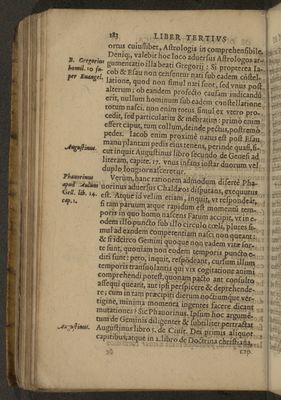 183
LIBER TERTIVS
ortus cuiuslibet, Astrologis incomprehensibile.
B. Gregorius
homil. 10 su-
per Euangel.
Deniq, valebit hoc loco aduersus Astrologos ar-
gumentatio illa beati Gregorij: Si propterea Ia-
cob & Esau non censentur nati sub eadem cóstel-
latione, quod non simul nati sunt, sed vnus post
alterum; ob eandem profecto causam indicandū
erit, nullum hominum sub eadem constellatione
totum nasci. non enim totus simul ex vtero pro-
cedit, sed particulatim & mēbratim: primo enim
effert caput, tum collum, deinde pectus, postremò
pedes. Iacob enim proximè natus est post Esau
manu plantam pedis eius tenens, perinde quasi, si-
Augustinus.
cut inquit Augustinus libro secundo de Genesi ad
literam, capite. 17. vnus infans instar duorum vel
duplo longior nasceretur.
Phauorinus
apud Aulum
Gell. lib. 14.
cap. 1.
Verùm, hanc rationem admodum disertè Pha-
uorinus aduersus Chaldæos disputans, exequutus
est. Atque id velim etiam, inquit, vt respondeat,
si tam paruum atque rapidum est momenti tem-
poris in quo homo nascens Fatum accipit, vt in e-
odem illo puncto sub illo circulo cœli, plures si-
mul ad eandem competentiam nasci non queant:
& si idcirco Gemini quoque non eadem vitæ sor-
te sunt, quoniam non eodem temporis puncto e-
diti sunt: peto, inquit, respōdeant, cursum illum
temporis transuolantis qui vix cogitatione animi
comprehendi potest, quonam pacto aut consulto
assequi queant, aut ipsi perspicere & deprehende-
re; cum in tam præcipiti dierum noctiumque ver-
tigine, minima momenta ingentes facere dicant
mutationes? Sic Phauorinus. Ipsum hoc argumē-
tum de Geminis diligenter & subtiliter pertractat
Augustinus.
Augustinus libro 5. de Ciuit. Dei primis aliquot
capitibus, atque in 2. libro de Doctrina christiana,
cap.